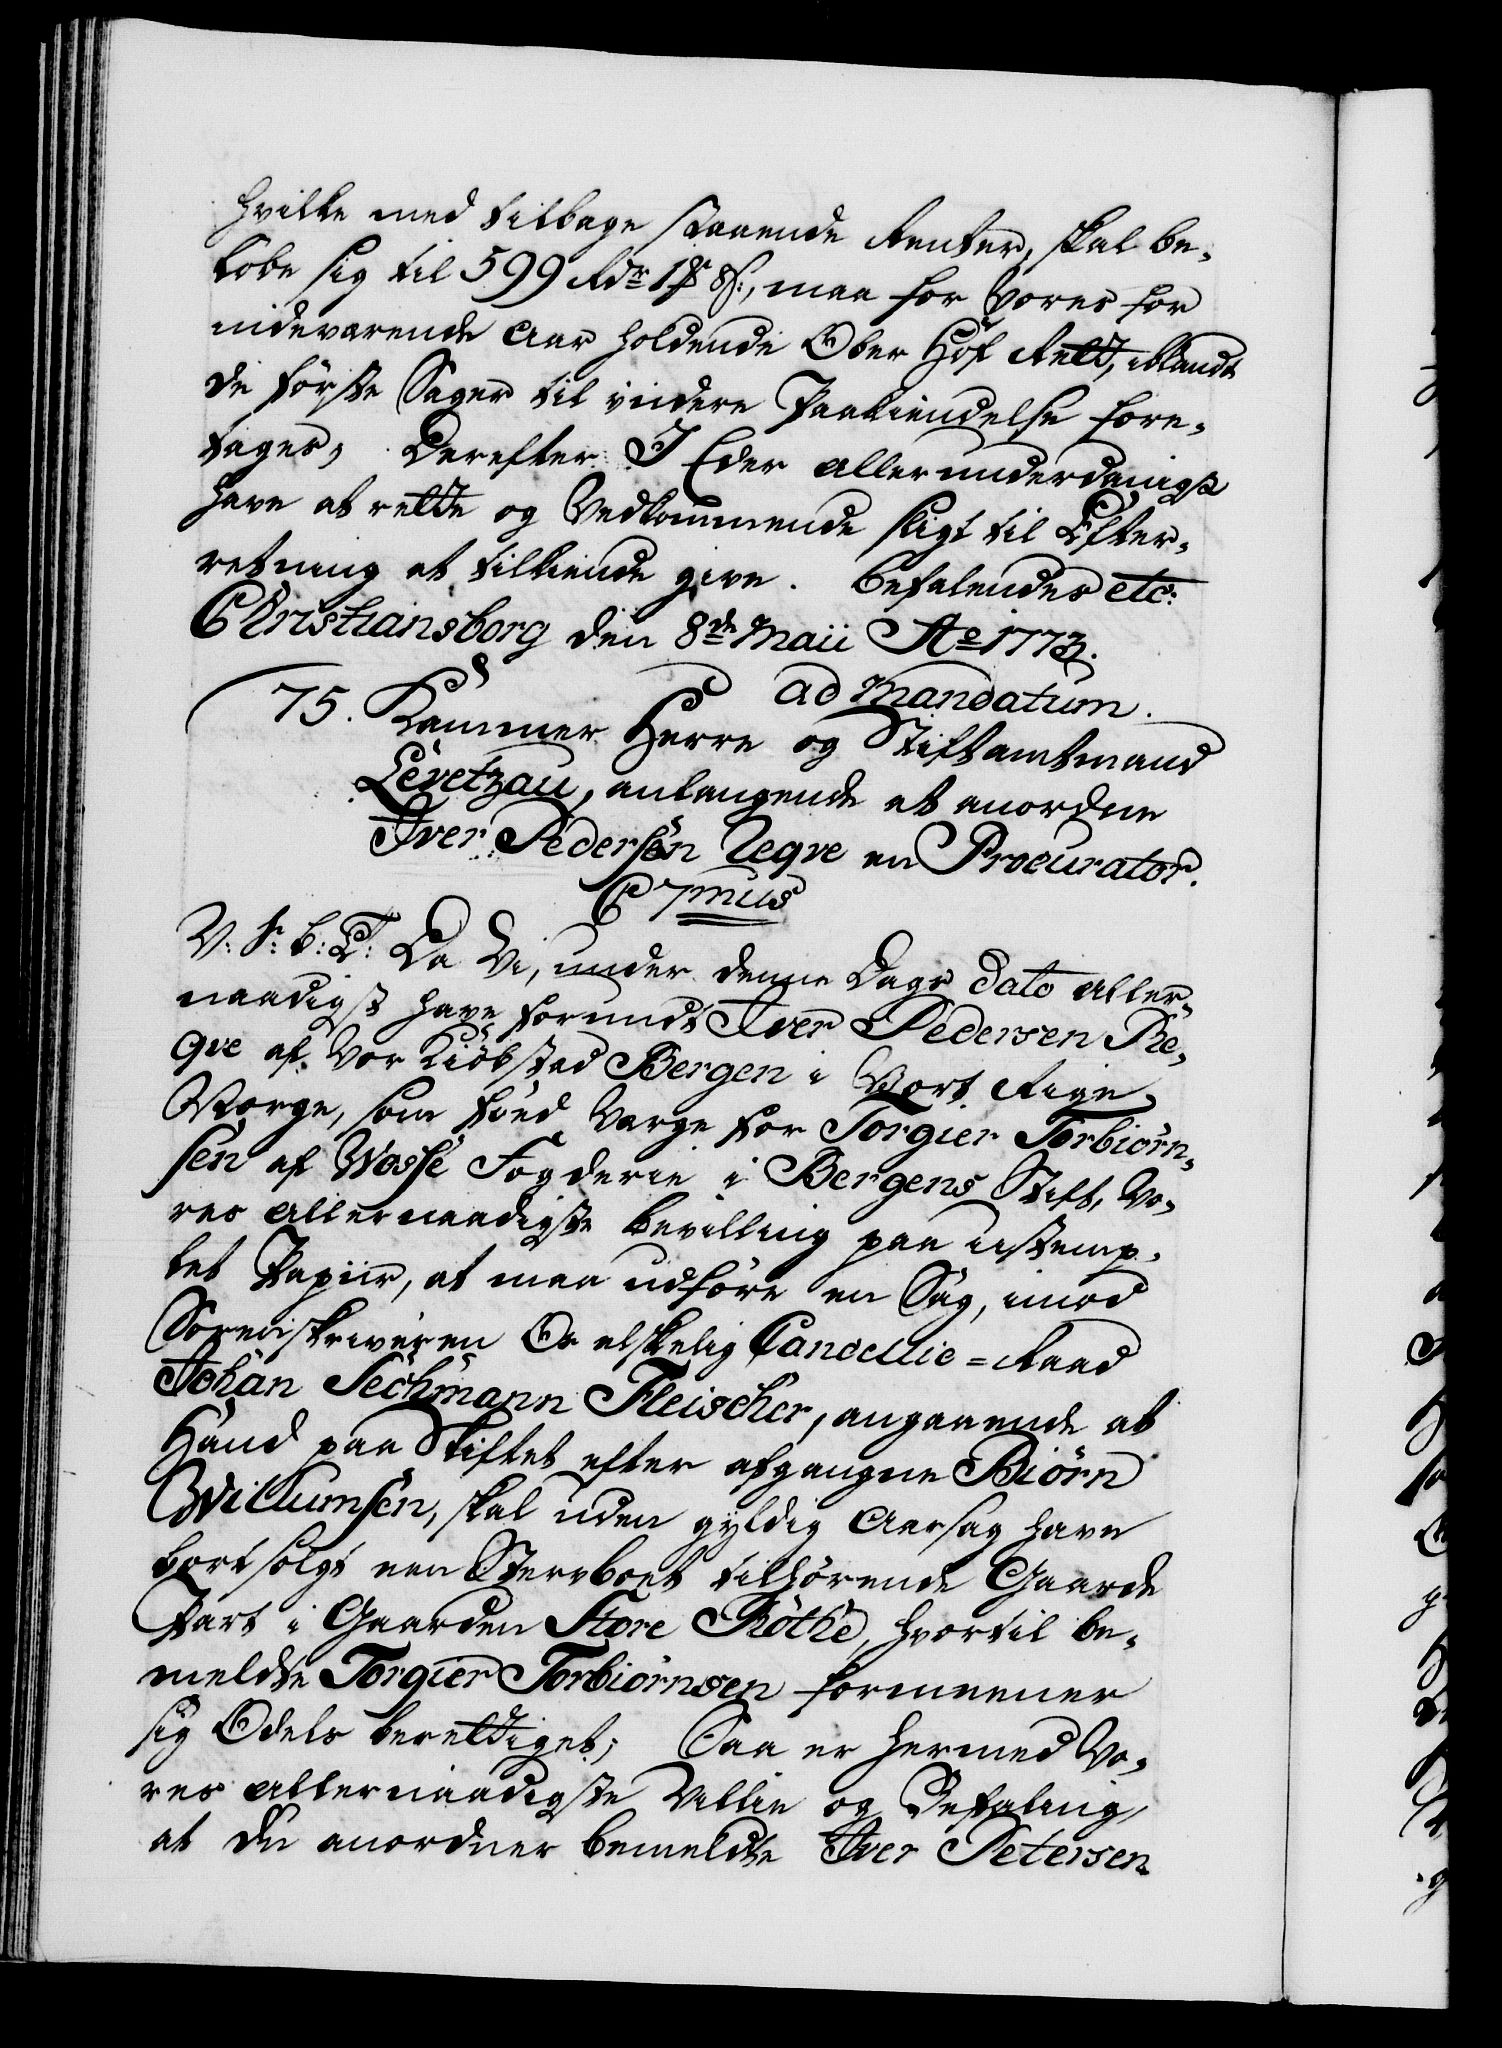 hvilke med tilbage staaende Renter, skal be-
løbe sig til 599 Rdr 1 # 8 s:, maa for Vores for
nideværende Aar holdende Ober Hof Rett, iblandt
de første Sager til videre Paakiendelse fore-
tages, Derefter I Eder allerunderdanigst
have at rette og Vedkommende sligt til Efter-
retning at tilkiende give. Befalendes etc:
Christiansborg den 8de Maii Ao 1773.
ad mandatum.
75. Kammer Herre og Stiftamtmand
Levetzau, anlangende at anordne
Iver Pedersøn Reqve en Procurator.
C 7mus
V: S: B: T: Da Vi, under denne Dags dato aller-
naadigst have forundt Iver Pedersen Re-
qve af Vor Kiøbsted Bergen i Vort Rige
Norge, som født Værge for Torgier Torbiørn-
sen af Wosse Fogderie i Bergens Stift, Vo-
res allernaadigste bevilling paa ustemp-
let Papiir, at maa udføre en Sag, imod
Sorenskriveren Os elskelig Cancellie-Raad
Johan Sechmann Fleischer, angaaende at
Hand paa Skiftet efter afgangne Biørn
Willumsen, skal uden gyldig Aarsag have
bortsolgt een Stervboet tilhørende Gaarde
Part i Gaarden Store Røthe, hvortil be-
meldte Torgier Torbiørnsen formeener
sig Odels berettiget; Saa er hermed Vo-
res allernaadigste Villie og Befaling,
at du anordner bemeldte Iver Petersen